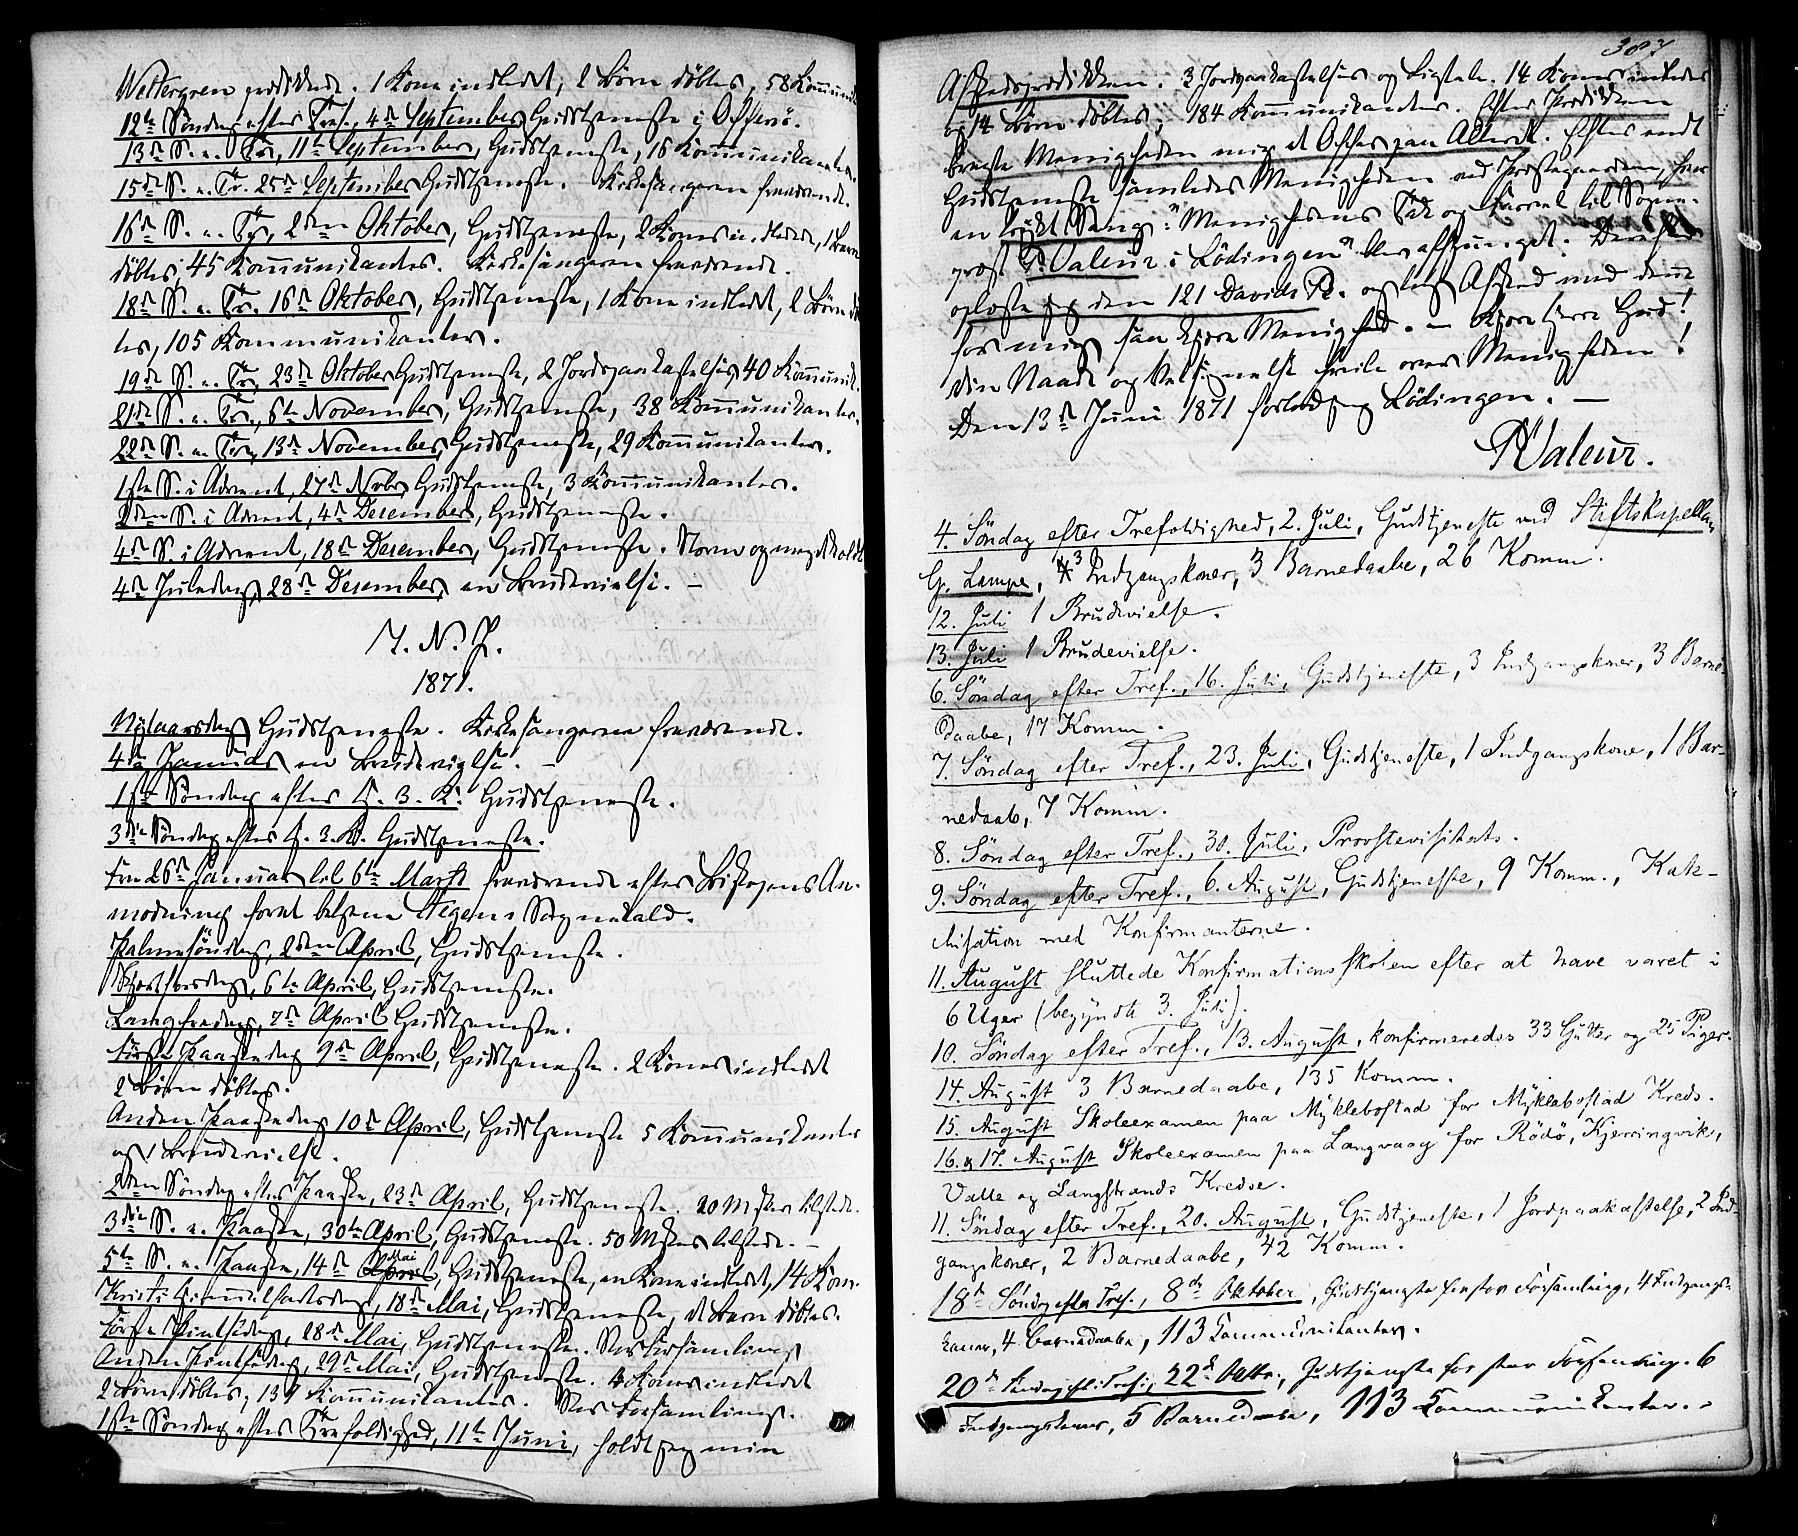 Wettergren prædikede. 1 Kone indledet, 2 Børn døbtes, 58 Kommunik
12te Søndag efter Tref., 4de September Gudstjeneste i Offersö.
13de S. e. Tr., 11te September, Gudstjeneste, 16 Kommunikanter.
15de S. e. Tr. 25de September Gudstjeneste. Kirkesangeren fraværende.
16de S. e. Tr., 2den Oktober, Gudstjeneste, 2 Koner indledede, 1 Barn
döbtes; 45 Kommunikanter. Kirkesangeren fraværende.
18de S. e. Tr. 16de Oktober, Gudstjeneste, 1 Kone indledet, 2 Börn döb
tes, 105 Kommunikanter.
19de S. e. Tr. 23de Oktober Gudstjeneste, 2 Jordpaakastelser, 40 Kommunik.
21de S. e. Tr., 6te November, Gudstjeneste, 38 Kommunikanter.
22de S. e. Tr., 13de November, Gudstjeneste, 29 Kommunikanter.
1ste S. i Advent, 27de Novbr, Gudstjeneste, 3 Kommunikanter.
2den S. i Advent, 4de Desember, Gudstjeneste.
4de S. i Advent, 18de Desember, Gudstjeneste. Storm og meget koldt
4de Juledag, 28de Desember, en Brudevielse. –
I. N. J.
1871.
Nytaarsdag Gudstjeneste. Kirkesangeren fraværende.
4de Januar en Brudevielse. –
1ste Søndag efter H. 3. K. Gudstjeneste.
3die Søndag efter H. 3. K. Gudstjeneste.
Fra 26de Januar til 6te Marts fraværende efter Biskopens An-
modning for at betjene Steigens Sognekald.
Palmesöndag, 2den April, Gudstjeneste.
Skjærtorsdag, 6te April, Gudstjeneste.
Langfredag, 7de April Gudstjeneste.
Förste Paaskedag 9de April, Gudstjeneste. 2 Koner indledet
2 Börn döbtes.
Anden Paaskedag 10de April, Gudstjeneste 5 Kommunikanter
og 1 Brudevielse.
2den Søndag efter Paaske, 23de April, Gudstjeneste. 20 Msker tilstede.
3die S. e. Paaske, 30te April, Gudstjeneste. 50 Msker tilstede. –
5te S. e. Paaske, 14de April Mai, Gudstjeneste, en Kone indledet, 14 Kom.
Kristi Himmelfartsdag, 18de Mai, Gudstjeneste, et Barn döbtes.
Förste Pintsedag, 28de Mai, Gudstjeneste. Stor Forsamling
Anden Pintsedag, 29de Mai, Gudstjeneste. 4 Koner indledet
2 Börn döbtes; 137 Kommunikanter. Stor Forsamling.
1ste Søndag efter Trefoldighed, 11te Juni, holdt jeg min
387
Afskedsprædiken. 3 Jordpaakastelser og Ligtale. 14 Koner indledes
og 14 Börn döbtes; 184 Kommunikanter. Efter Prædiken
bragte Menigheden mig et Offer paa Alteret. Efter endt
Gudstjeneste samledes Menigheden ved Præstegaarden, hvor
en trykt Sang: "Menighedens Tak og Farvel til Sogne-
præst P. Valeur i Lödingen" blev afsunget. Derefter
oplæste jeg den 121 Davids Ps. og tog Afsked med denne
for mig saa kjære Menighed. – Kjære Herre Gud!
din Naade og Velsignelse hvile over Menigheden!
Den 13de Juni 1871 forlod jeg Lödingen. –
P Valeur.
4. Söndag efter Trefoldighed, 2. Juli, Gudstjeneste ved Stiftskapellan
G. Lampe, 3 Indgangskoner, 3 Barnedaabe, 26 Komm.
12. Juli 1 Brudevielse.
13. Juli 1 Brudevielse.
6. Söndag efter Tref., 16. Juli, Gudstjeneste, 3 Indgangskoner, 3 Barne-
daabe, 17 Komm.
7. Söndag efter Tref., 23. Juli, Gudstjeneste, 1 Indgangskone, 1 Bar-
nedaab, 7 Komm.
8. Söndag efter Tref., 30. Juli, Proostevisitats.
9. Söndag efter Tref., 6. August, Gudstjeneste, 9 Komm., Kate-
chisation med Konfirmanterne.
11. August sluttede Konfirmationsskolen efter at have varet i
6 Uger (begyndte 3. Juli).
10. Söndag efter Tref., 13. August, konfirmeredes 33 Gutter og 25 Piger.
14. August 3 Barnedaabe, 135 Komm.
15. August Skoleexamen paa Myklebostad for Myklebostad Kreds.
16. & 17. August Skoleexamen paa Langvaag for Rödö, Kjerringvik,
Valle og Langstrands Kredse.
11. Söndag efter Tref., 20. August, Gudstjeneste, 1 Jordpaakastelse, 2 Ind-
gangskoner, 2 Barnedaabe, 42 Komm.
18de Söndag efter Tref., 8de Oktober, Gudstjeneste for stor Forsamling, 4 Indgangs-
koner, 4 Barnedaabe, 113 Communikanter.
20de Søndag eft. Tref., 22de Oktbr., Gudstjeneste for stor Forsamling. 6
Indgangskoner, 5 Barnedaabe, 113 Communikanter. –